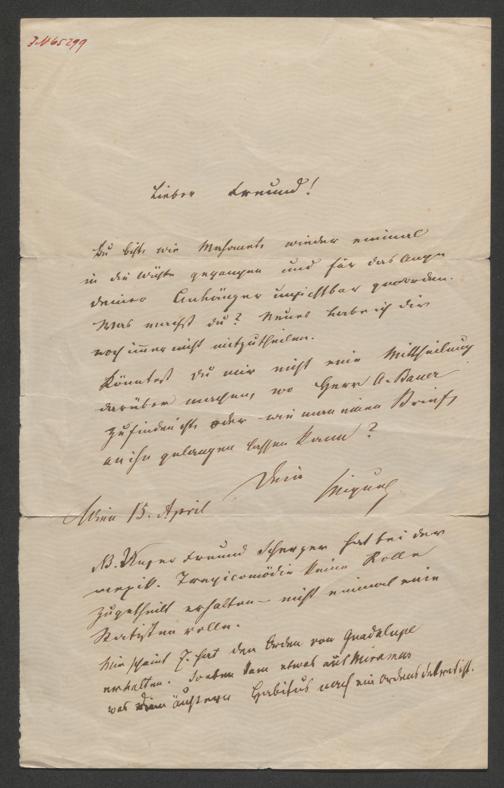 I.N 65299
Lieber Freund!
Du bist wie Mahomet wieder einmal
in die Wüste gegangen und für das Auge
deiner Anhänger unsichtbar geworden.
Was machst du? Neues habe ich dir
noch immer nicht mitzutheilen.
Könntest du mir nicht eine Mittheilung
darüber machen, wo Herr A. Bauer
zu finden ist, oder wie man einen Brief
an ihn gelangen lassen kann?
Dein
Miguel
Wien 15. April
NB. Unser Freund Scherzer hat bei der
mexik. Tragicomödie keine Rolle
zugetheilt erhalten – nicht einmal eine
Statistenrolle.
Mir scheint J. hat den Orden von Guadelupe
erhalten. Soeben kam etwas aus Miramar
was dem äußern Habitus nach ein Ordensdekret ist.